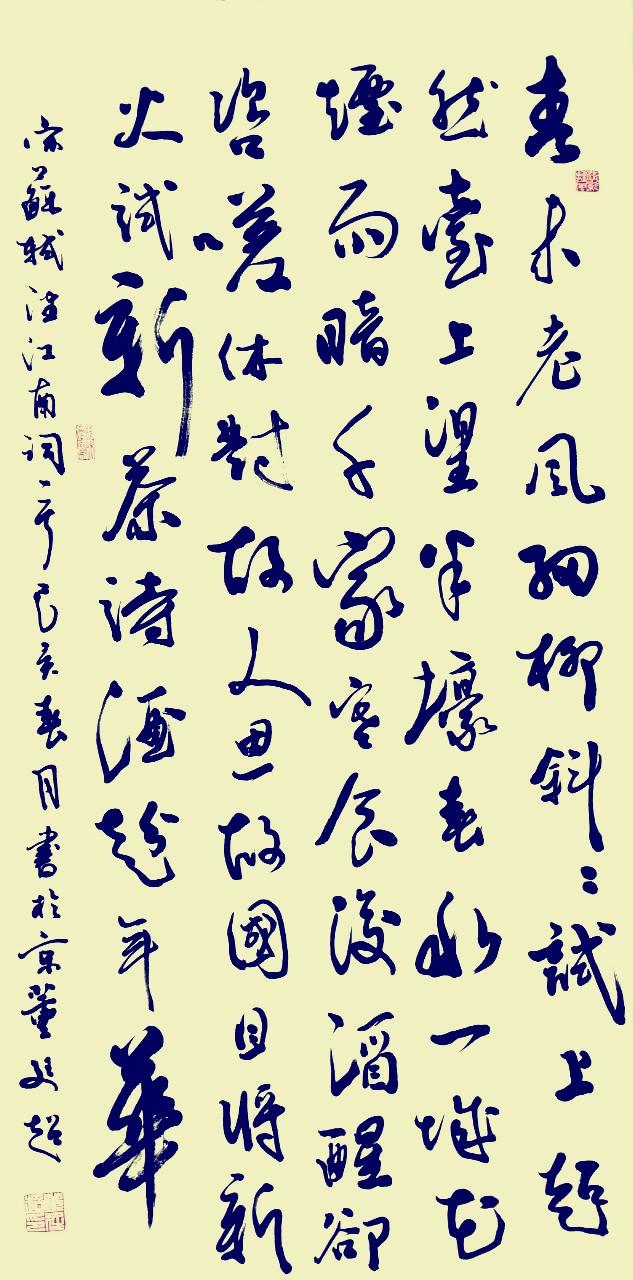 春未老風細柳斜〻試上超
然臺上望半壕春水一城花
煙雨暗千家寒食後酒醒卻
咨嗟休對故人思故國且將新
火試新茶詩酒趁年華
宋蘇軾望江南詞一首己亥春月書於京